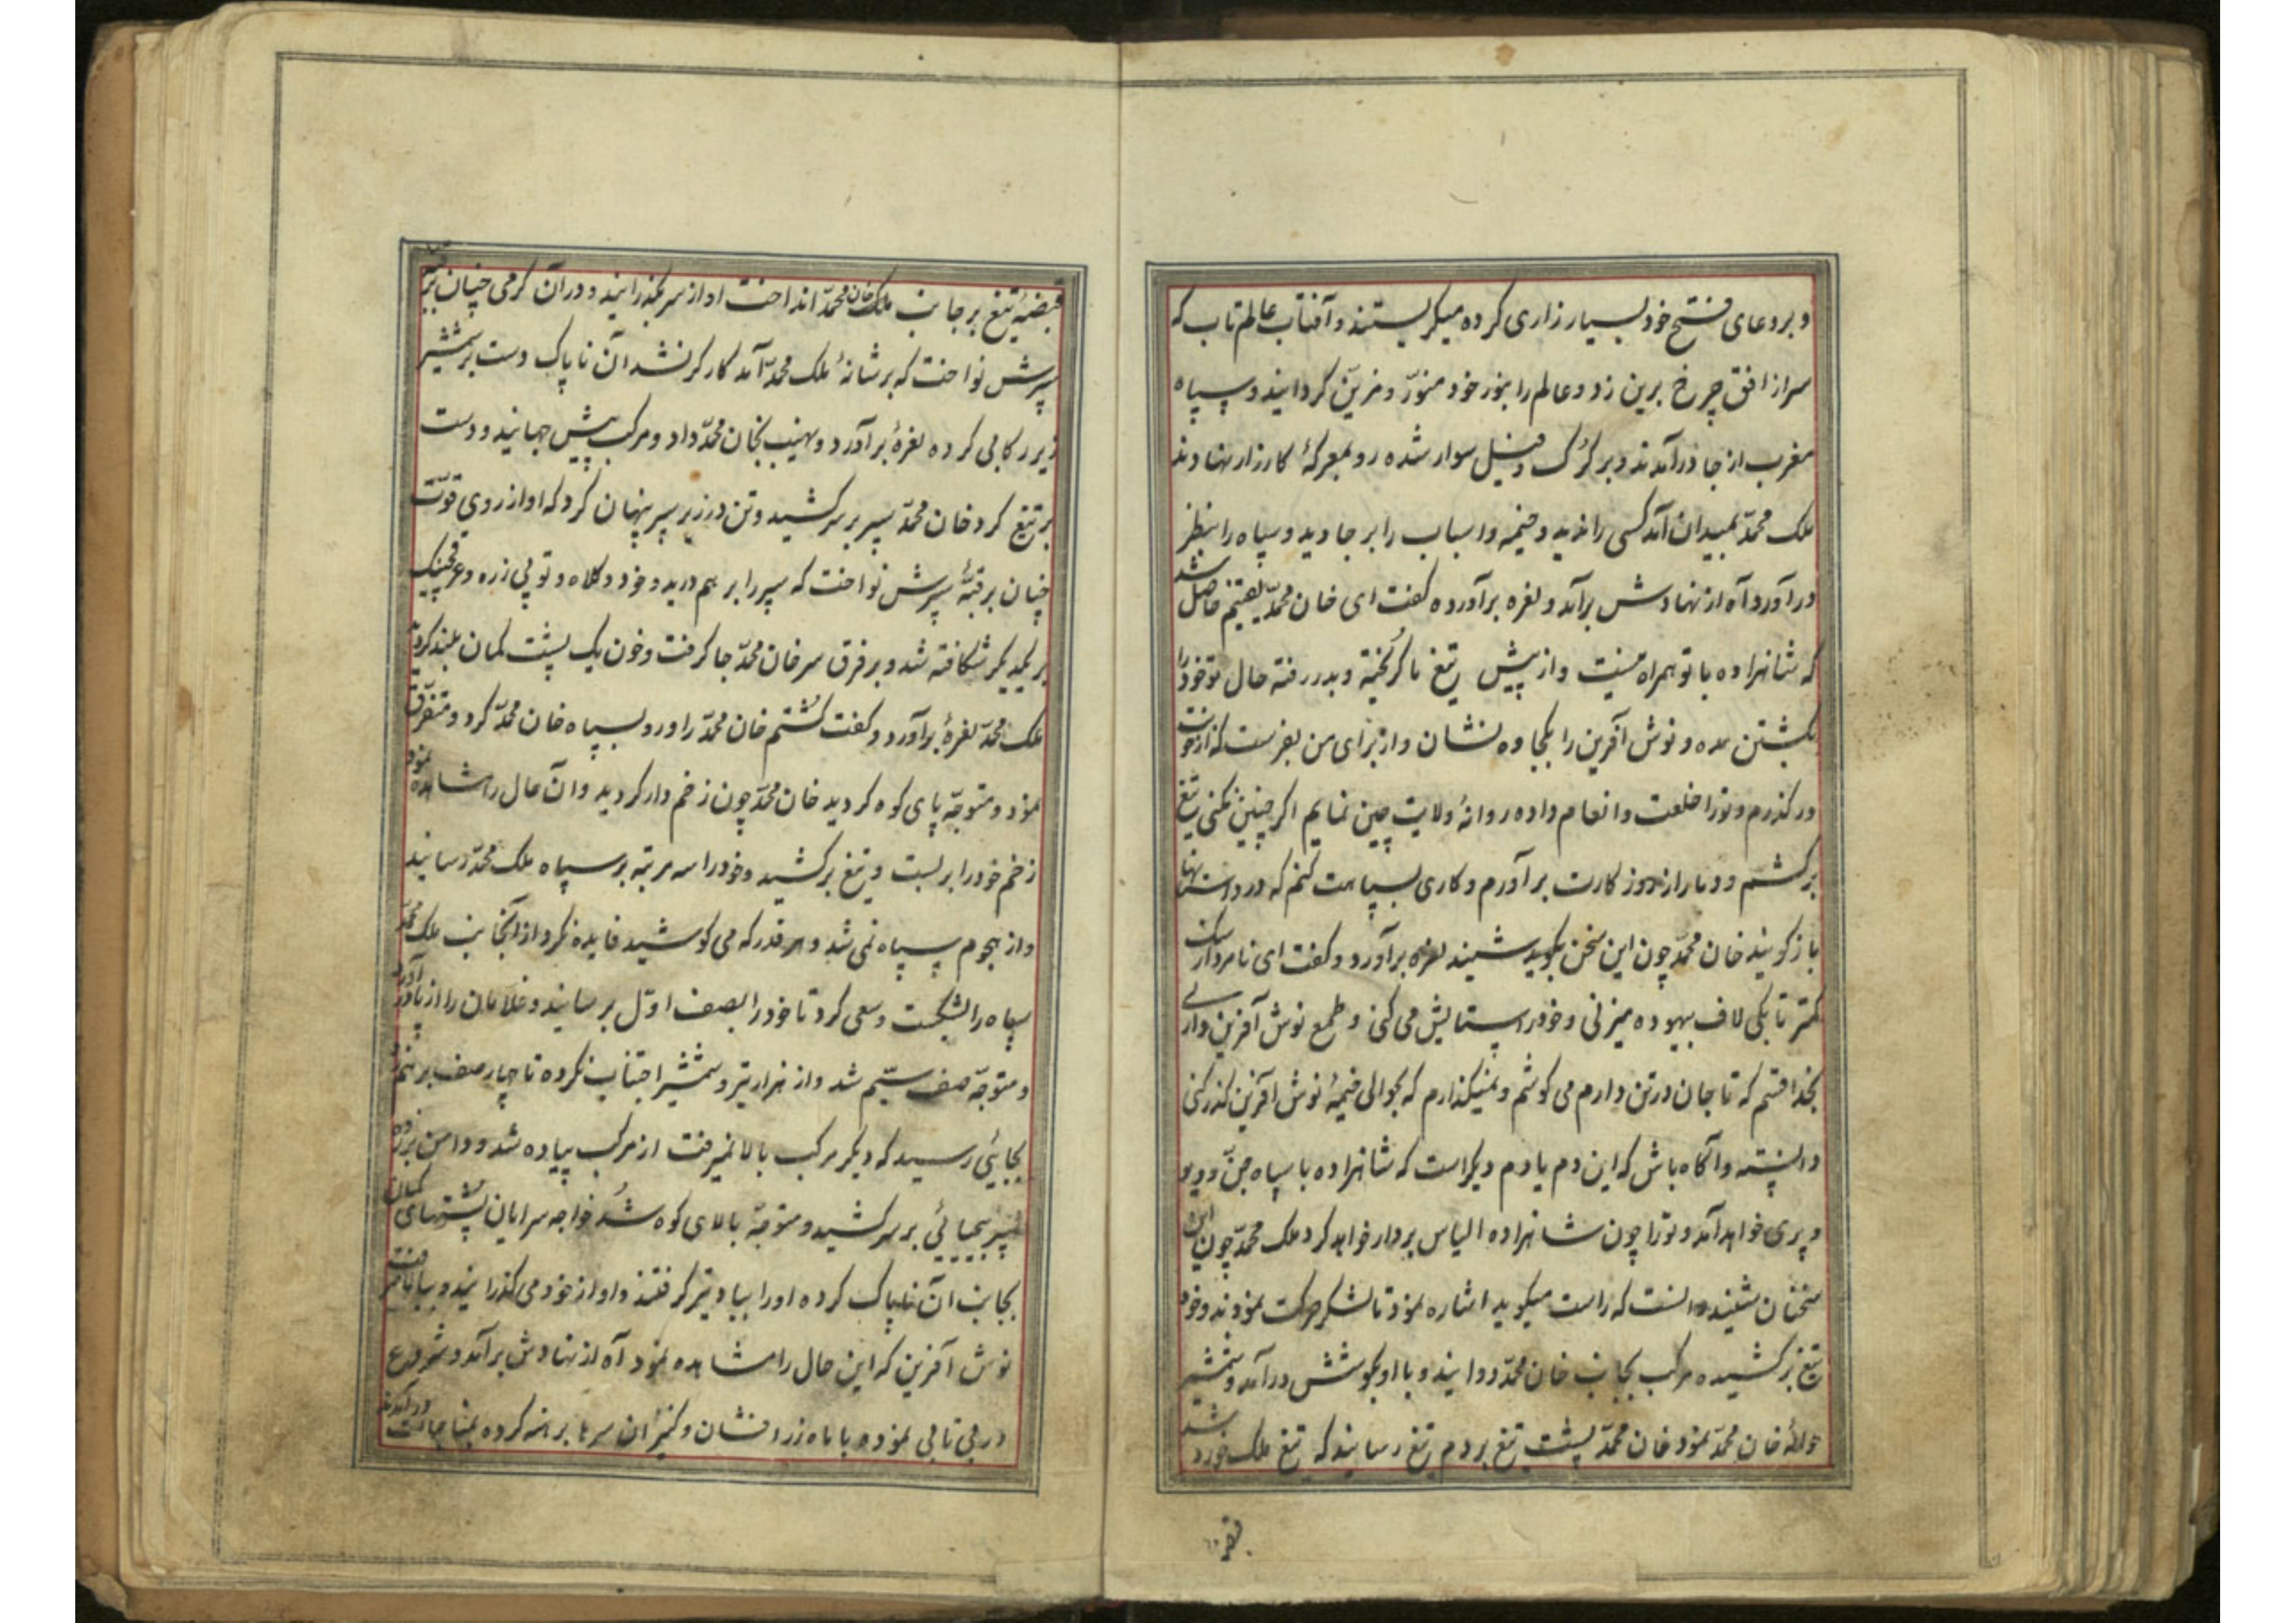 و بر دعای فتح خود بسیار زاری کرده میکریستند و آفتاب عالم تاب که
سر از افق چرخ برین زد و عالم را بنور خود منور و مزین کردانید و سپاه
مغرب از جا درآمدند و بر کرک و فیل سوار شده رو بمعرکهٔ کارزار نهادند
ملک محمد بمیدان آمد کسی را ندید و خیمه و اسباب را بر جا دید و سپاه را بنظر
در آورد آه از نهادش برآمد و نعره برآورده کفت ای خان محمد یقینم حاصل شد
که شاهزاده با تو همراه نیست و از پیش تیغ ما کریخته و بدر رفته حال تو خود را
بکشتن مده و نوش آفرین را بکجاوه نشان و از برای من بفرست که از خونت
در کذرم و ترا خلعت و انعام داده روانهٔ ولایت چین نمایم اکر چنین نکنی تیغ
بر کشم و دمار از روز کارت برآورم و کاری بسپاهت کنم که در داستانها
باز کویند خان محمد چون این سخن بکوید شنید نعره برآورد و کفت ای نامرد از سک
کمتر تا بکی لاف بیهوده میزنی و خود را ستایش می کنی و طمع نوش آفرین داری
بخدا قسم که تا جان در تن دارم می کوشم و نمیکذارم که بحوالی خیمهٔ نوش آفرین کذر کنی
دانسته و آکاه باش که این دم یا دم دیکر است که شاهزاده با سپاه جن و دیو
و پری خواهد آمد و ترا چون شاهزاده الیاس بر دار خواهد کرد ملک محمد چون این
سخنان شنید دانست که راست میکوید اشاره نمود تا لشکر حرکت نمودند و خود
تیغ برکشیده مرکب بجانب خان محمد دوانید و با او بجوشش درآمد و شمشیر
حوالهٔ خان محمد نمود خان محمد پشت تیغ بر دم تیغ رسانید که تیغ ملک خورد شد
قبضهٔ
قبضهٔ تیغ بر جانب ملک خان محمد انداخت او از سر بکذرانید و در آن کرمی چنان بر قبهٔ
سپرش نواخت که بر شانهٔ ملک محمد آمد کارکر نشد آن ناپاک دست بر شمشیر
زیر رکابی کرده نعرهٔ برآورد و نهیب بخان محمد داد و مرکب پیش جهانید و دست
بر تیغ کرد خان محمد سپر بر سر کشید و تن در زیر سپر پنهان کرد که او از روی قوت
چنان بر قبهٔ سپرش نواخت که سپر را بر هم درید و خود و کلاه و توپی زره و عرقچینک
بر یکدیکر شکافته شد و بر فرق سر خان محمد جا کرفت و خون یک پشت کمان بلند کردید
ملک محمد نعرهٔ برآورد و کفت کشتم خان محمد را و رو بسپاه خان محمد کرد و متفرق
نمود و متوجه پای کوه کردید خان محمد چون زخم دار کردید و آن حال را مشاهده نمود
زخم خود را بر بست و تیغ برکشید و خود را سه مرتبه بر سپاه ملک محمد رسانید
و از هجوم سپاه نمی شد و هر قدر که می کوشید فایده نکرد از آنجانب ملک محمد
سپاه را بشکست و سعی کرد تا خود را بصف اول برسانید و غلامان را از پا درآورد
و متوجه صف سیم شد و از هزار تیر و شمشیر اجتناب نکرده تا چهار صف بر هم زد
بجایئی رسید که دیکر مرکب بالا نمیرفت از مرکب پیاده شد و دامن بر زده
سپر بیحیائی بر سر کشید و متوجه بالای کوه شد خواجه سرایان پشتهای کمان
بجانب آن ناپاک کرده او را بباد تیر کرفتند و او از خود می کذرانید و ببالا میرفت
نوش آفرین که این حال را مشاهده نمود آه از نهادش برآمد و شروع
در بی تابی نموده با ماه زرافشان و کنیزان سرها برهنه کرده بمناجات درآمدند